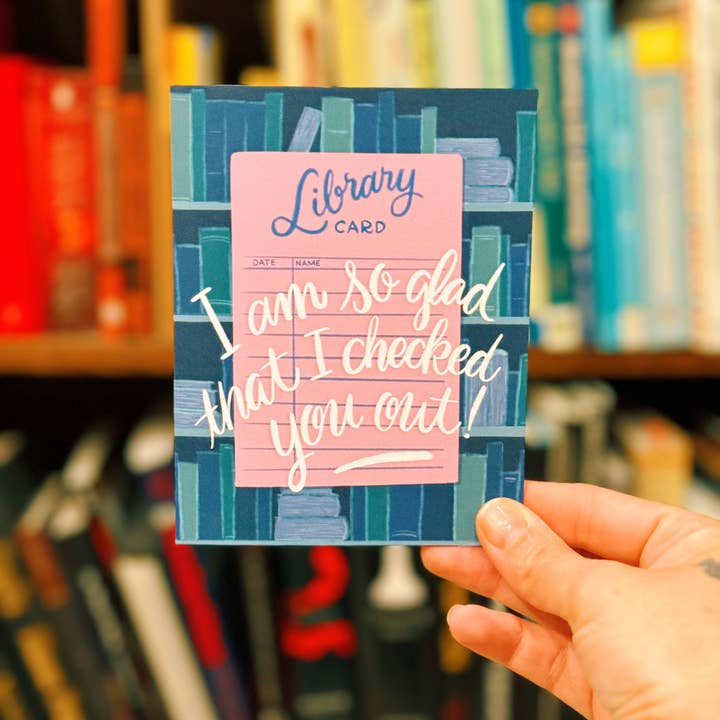 Library
CARD
DATE NAME
I am so glad
that I checked
you out!